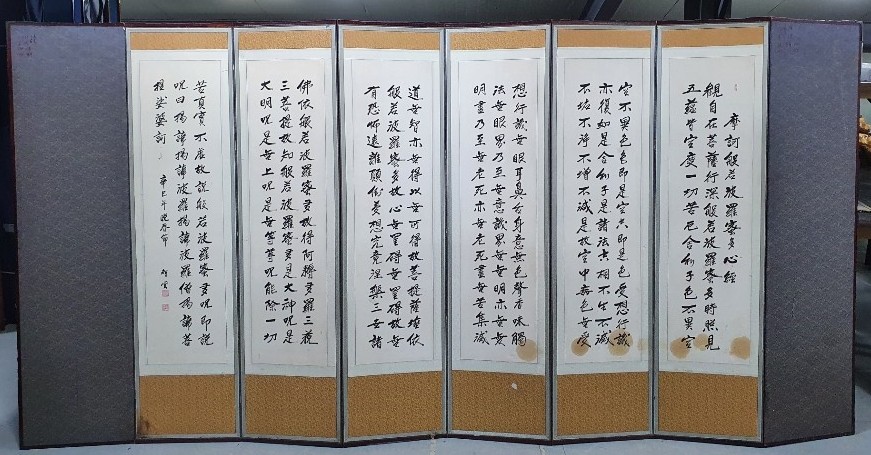 摩訶般若波羅蜜多心經
觀自在菩薩行深般若波羅蜜多時照見
五蘊皆空度一切苦厄舍利子色不異空
空不異色色即是空空即是色受想行識
亦復如是舍利子是諸法空相不生不滅
不垢不淨不增不減是故空中無色無受
想行識無眼耳鼻舌身意無色聲香味觸
法無眼界乃至無意識界無無明亦無無
明盡乃至無老死亦無老死盡無苦集滅
道無智亦無得以無所得故菩提薩埵依
般若波羅蜜多故心無罣碍無罣碍故無
有恐怖遠離顛倒夢想究竟涅槃三世諸
佛依般若波羅蜜多故得阿耨多羅三藐
三菩提故知般若波羅蜜多是大神呪是
大明呪是無上呪是無等等呪能除一切
苦真實不虛故說般若波羅蜜多呪即說
呪曰揭諦揭諦波羅揭諦波羅僧揭諦菩
提娑婆訶 辛巳年晚春節